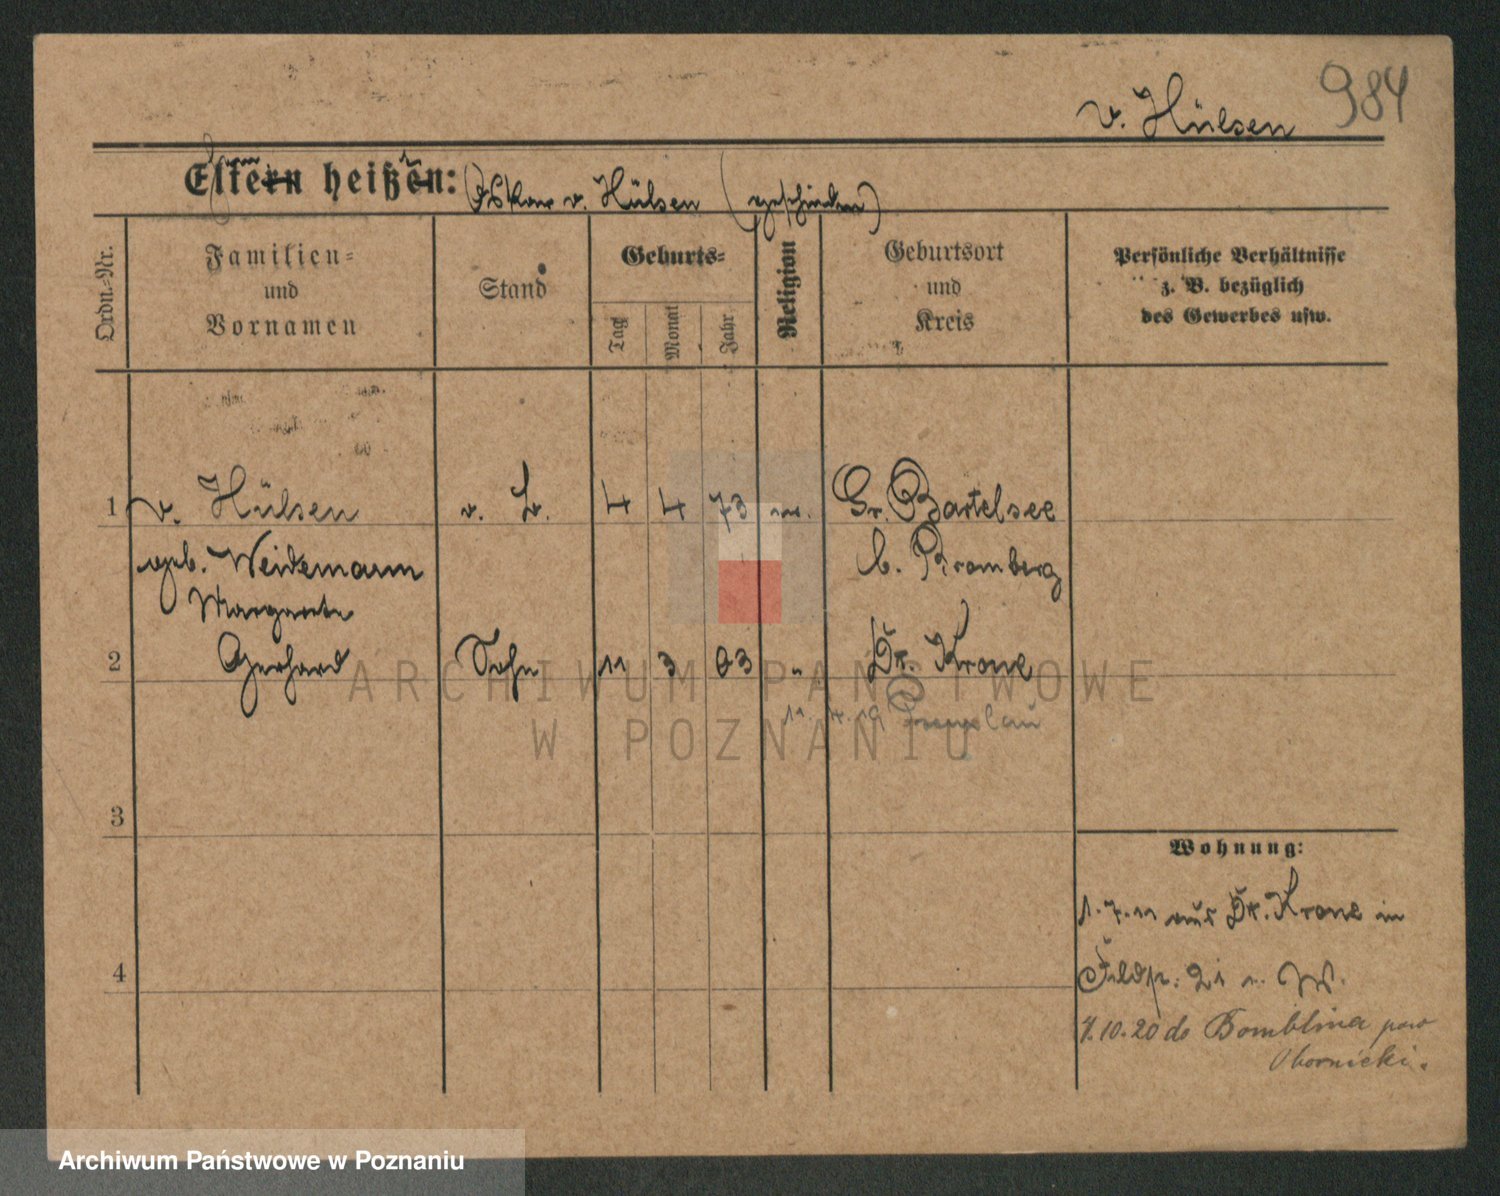 v. Hülsen 984
Eltern heißen: Oskar v. Hülsen (geschieden)
Ordn.-Nr.
Familien-
und
Vornamen
Stand
Geburts-
Tag
Monat
Jahr
Religion
Geburtsort
und
Kreis
Persönliche Verhältnisse
z. B. bezüglich
des Gewerbes usw.
1 v. Hülsen 4 4 73 Gr. Bartelsee
geb. Weidemann b. Bromberg
Margarete
2 Gerhard Sohn 11 3 03 " Dt. Krone
11. 4. 19
3
Wohnung:
1.7.11 aus Dt. Krone in
4 Feldstr. 21
7.10.20 do Bomblina pow
Obornicki.
ARCHIWUM PAŃSTWOWE
W POZNANIU
Archiwum Państwowe w Poznaniu